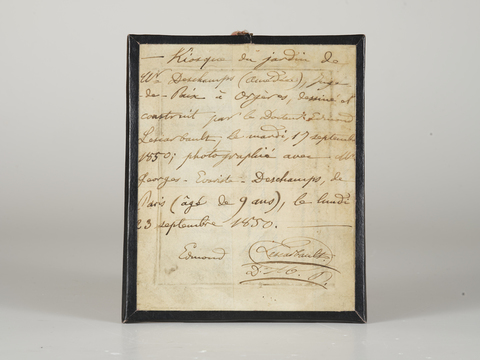 — Kiosque du jardin de
Mr Deschamps (Amédée), Juge
de-Paix à Orgères, dessiné et
construit par le Docteur Edmond
Lescarbault, le mardi, 17 septembre
1850; photographié avec Mr
Georges-Evariste-Deschamps, de
Paris (âgé de 9 ans), le lundi
23 septembre 1850.
Edmond Lescarbault
D.